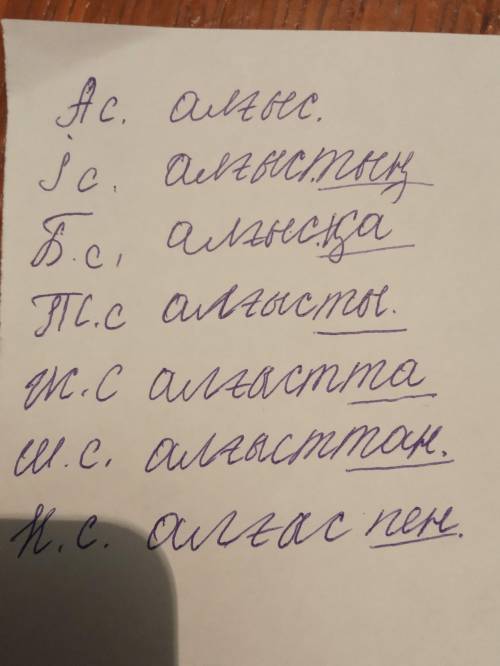 Ас. алғыс.
Іс. алғыстың
Б.с. алғысқа
Т.с алғысты.
Ж.с алғастта
Ш.с. алғысттан.
К.с. алғас пен.